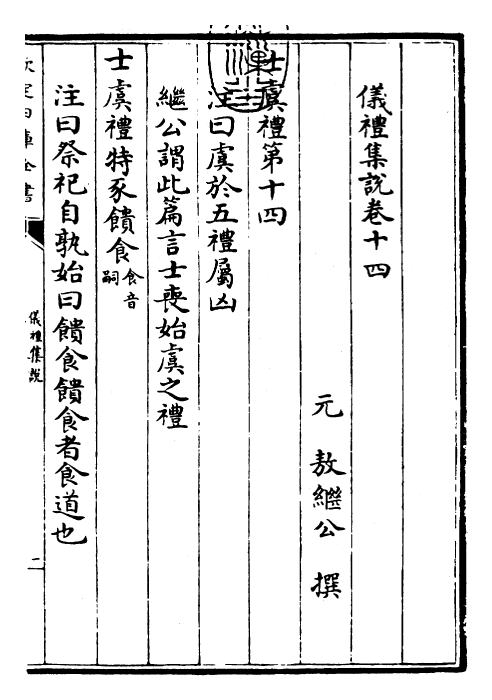 儀禮集說卷十四
元 敖繼公 撰
士虞禮第十四
注曰虞於五禮屬凶
繼公謂此篇言士喪始虞之禮
士虞禮特豕饋食食音嗣
注曰祭祀自孰始曰饋食饋食者食道也
儀禮集說
二